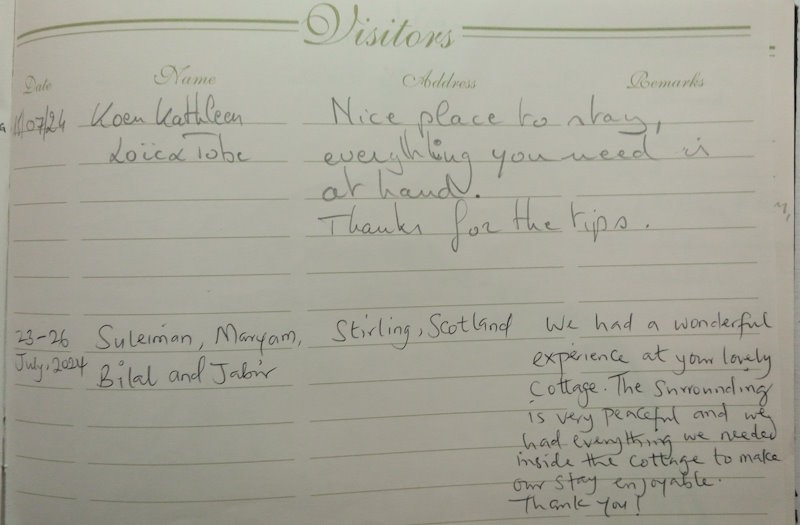 Visitors
Date Name Address Remarks
/07/24 Koen Kathleen Nice place to stay,
Loïc & Tobe everything you need is
at hand.
Thanks for the tips.
23-26 Suleiman, Maryam, Stirling, Scotland We had a wonderful
July, 2024 Bilal and Jabir experience at your lovely
Cottage. The Surrounding
is very peaceful and we
had everything we needed
inside the cottage to make
our stay enjoyable.
Thank you!